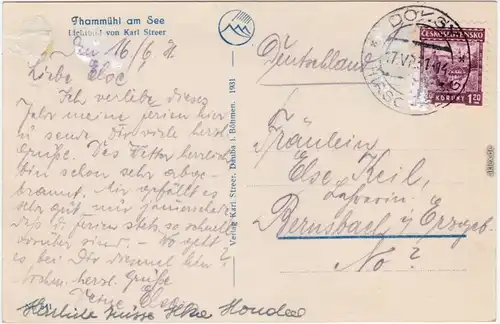 Thammühl am See
Lichtbild von Karl Streer
16/6 31
Liebe Else
Ich verlebe dieses
Jahr meine Ferien hier
u sende Dir viele herzl.
Grüße. Das Wetter herrlich
bin schon sehr abge-
brannt. Mir gefällt es
sehr gut nur schade
daß d. Ferien stets so schnell
vorüber sind. – Wo geht
es bei Dir diesmal hin?
herzl. Grüße
Deine
Herzliche Grüsse
Verlag Karl Streer, Dauba i. Böhmen. 1931
Deutschland
DOKSY
ČESKOSLOVENSKO
KORUNY 1.20
Fräulein
Else Keil,
Bernsbach i/ Erzgeb.
No ?